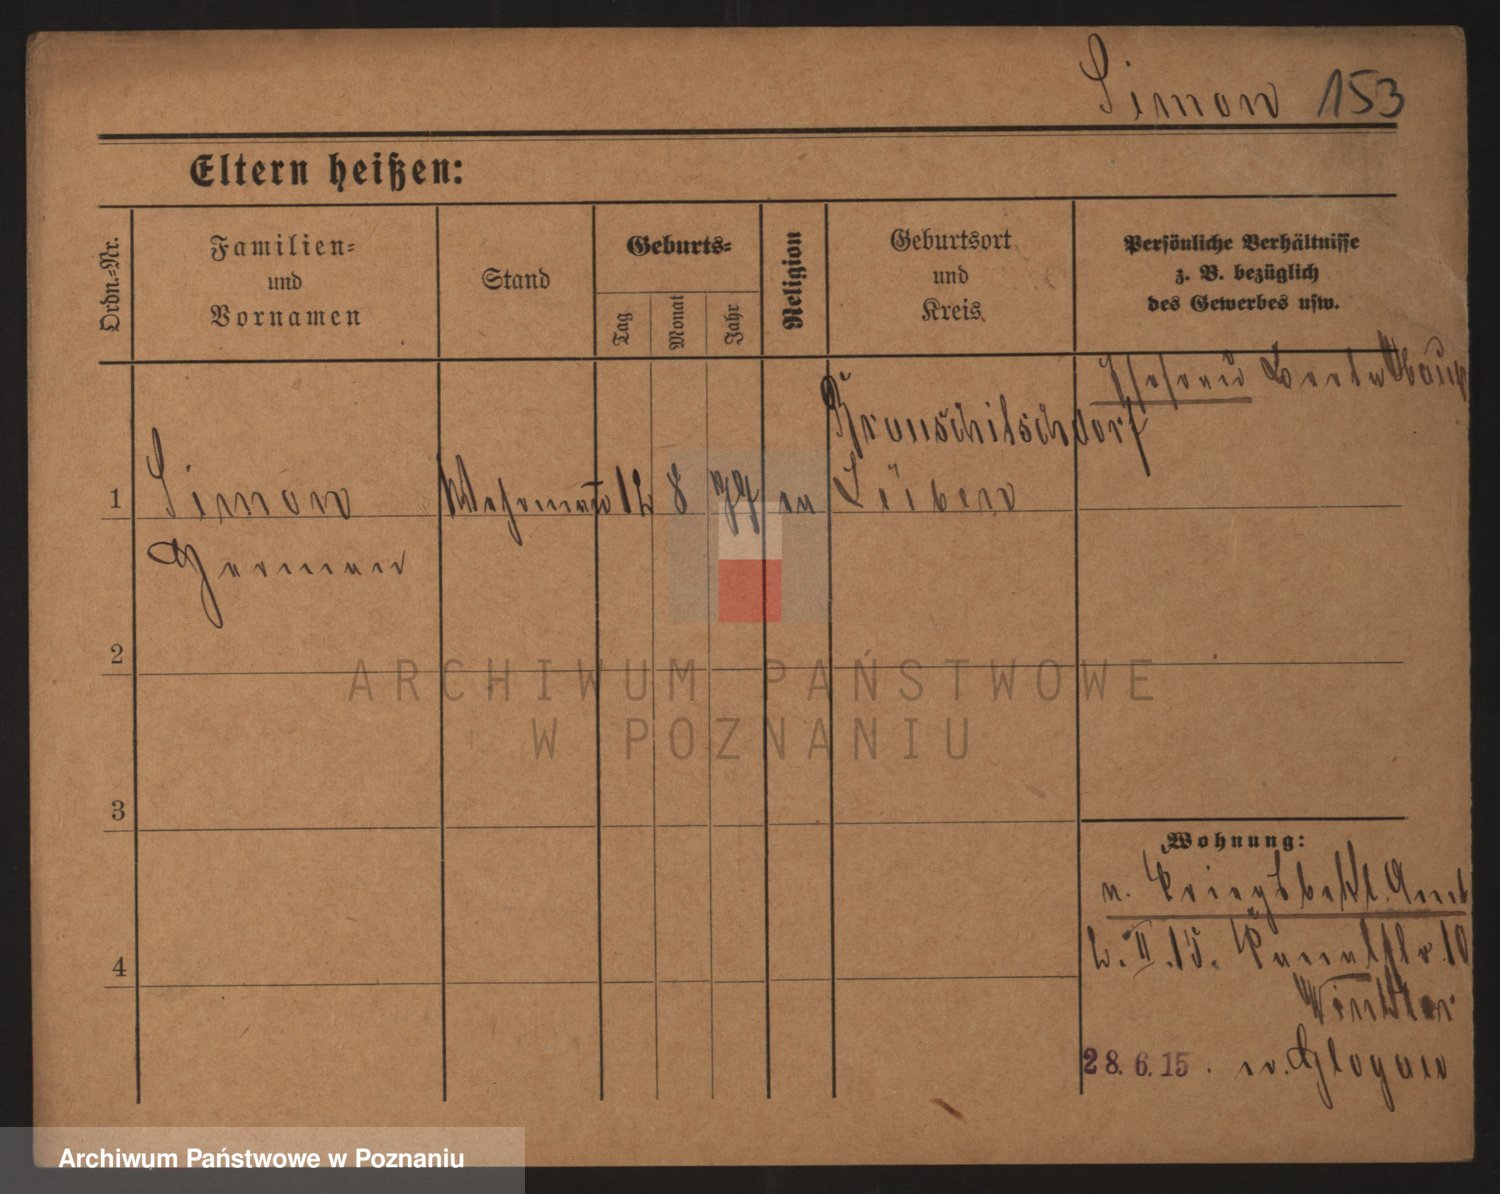 Simon 153
Eltern heißen:
Ordn.=Nr.
Familien=
und
Vornamen
Stand
Geburts=
Tag
Monat
Jahr
Religion
Geburtsort
und
Kreis
Persönliche Verhältnisse
z. B. bezüglich
des Gewerbes usw.
Ehefrau
1
Simon
Herman
Wehrmann
12
8
77
ev
Lüben
2
3
4
ARCHIWUM PAŃSTWOWE
W POZNANIU
Wohnung:
n. Kriegsbekl. Amt
2. II. 15. Kanalstr. 10
Winkler
28. 6. 15. n. Glogau
Archiwum Państwowe w Poznaniu